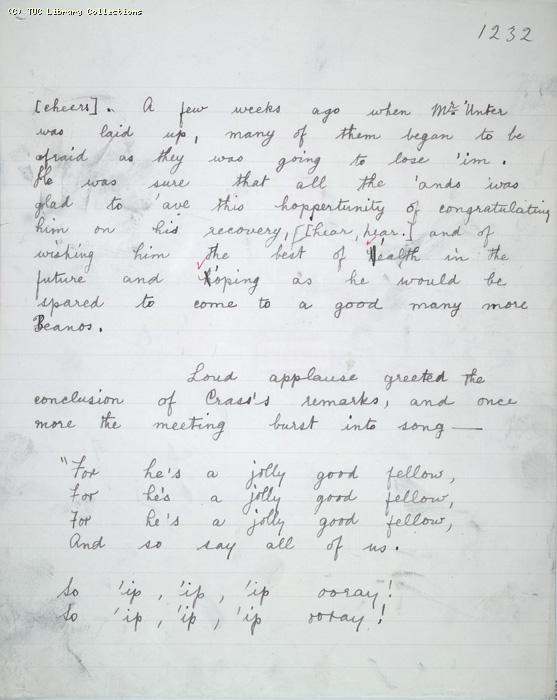 (C) TUC Library Collections
1232
[cheers]. A few weeks ago when Mr 'Unter
was laid up, many of them began to be
afraid as they was going to lose 'im.
He was sure that all the 'ands was
glad to 'ave this hoppertunity of congratulating
him on his recovery, [hear, hear.] and of
wishing him the best of 'ealth in the
future and 'oping as he would be
spared to come to a good many more
Beanos.
Loud applause greeted the
conclusion of Crass's remarks, and once
more the meeting burst into song —
"For he's a jolly good fellow,
For he's a jolly good fellow,
For he's a jolly good fellow,
And so say all of us.
So 'ip, 'ip, 'ip ooray!
So 'ip, 'ip, 'ip ooray!